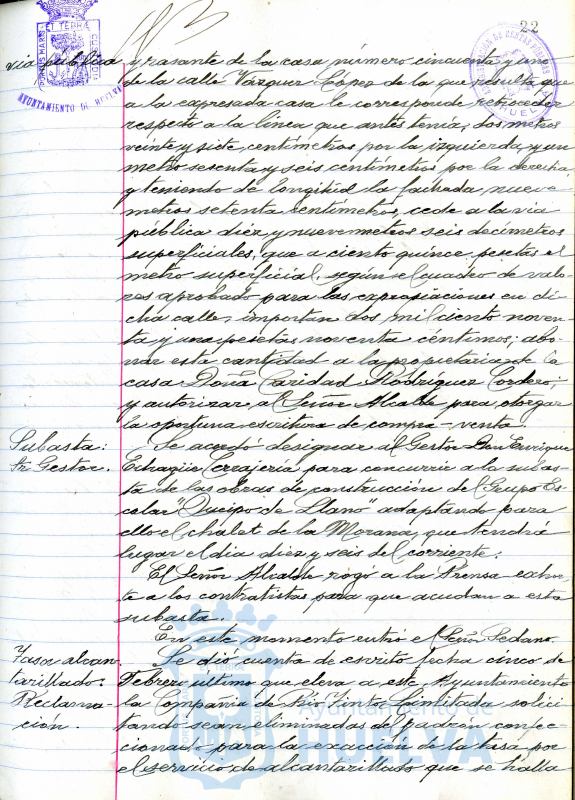 22
AYUNTAMIENTO DE HUELVA
via pública y rasante de la casa número cincuenta y uno
de la calle Vázquez López de la que resulta que
a la expresada casa le corresponde retroceder
respecto a la línea que antes tenía, dos metros
veinte y siete centímetros por la izquierda, y un
metro sesenta y seis centímetros por la derecha,
y teniendo de longitud la fachada nueve
metros setenta centímetros, cede a la via
pública diez y nueve metros seis decímetros
superficiales, que a ciento quince pesetas el
metro superficial, según el cuadro de valo-
res aprobado para las expropiaciones en di-
cha calle, importan dos mil ciento noven-
ta y una pesetas noventa céntimos; abo-
nar esta cantidad a la propietaria de la
casa Doña Caridad Rodríguez Cordero;
y autorizar al Señor Alcalde para otorgar
la oportuna escritura de compra-venta.
Subasta:
Sr. Gestor.
Se acordó designar al Gestor Don Enrique
Echagüe Cerrajería para concurrir a la subas-
ta de las obras de construcción del Grupo Es-
colar "Queipo de Llano" adaptando para
ello el chalet de la Morana, que tendrá
lugar el día diez y seis del corriente.
El Señor Alcalde rogó a la Prensa exhor-
te a los contratistas para que acudan a esta
subasta.
En este momento entró el Señor Sedano.
Tasa alcan-
tarillado:
Reclama-
ción.
Se dió cuenta de escrito fecha cinco de
Febrero último que eleva a este Ayuntamiento
la Compañía de Rio Tinto Limitada solici-
tando sean eliminadas del padrón confec-
cionado para la exacción de la tasa por
el servicio de alcantarillado que se halla
Ayuntamiento de
HUELVA